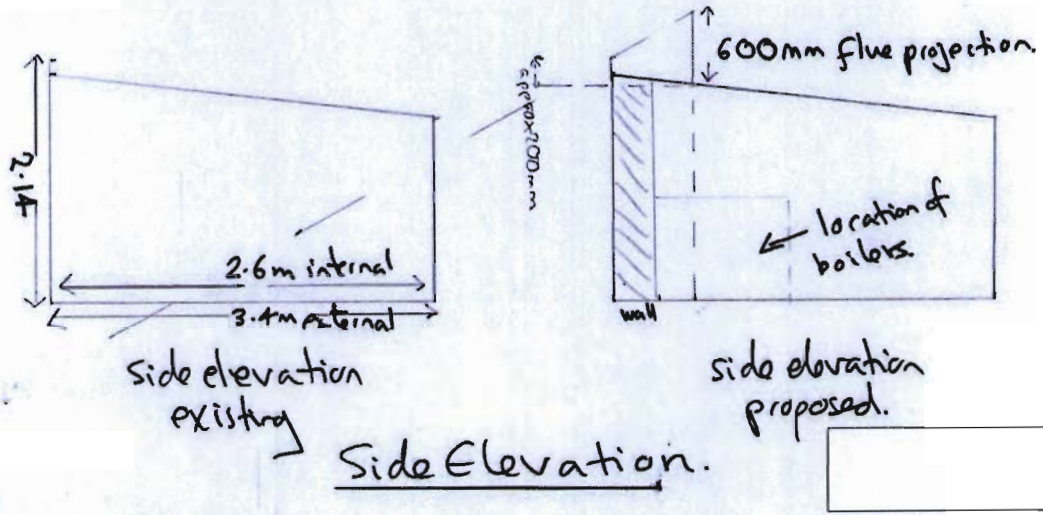 2.14
2.6m internal
3.4m external
side elevation
existing
approx 200mm
600mm flue projection.
location of
boilers.
wall
side elevation
proposed.
Side Elevation.